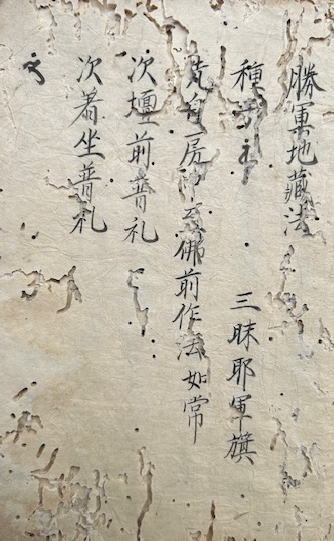 勝軍地藏法
種 三昧耶軍旗
房 佛前作法如常
次壇前普礼
次着坐普礼